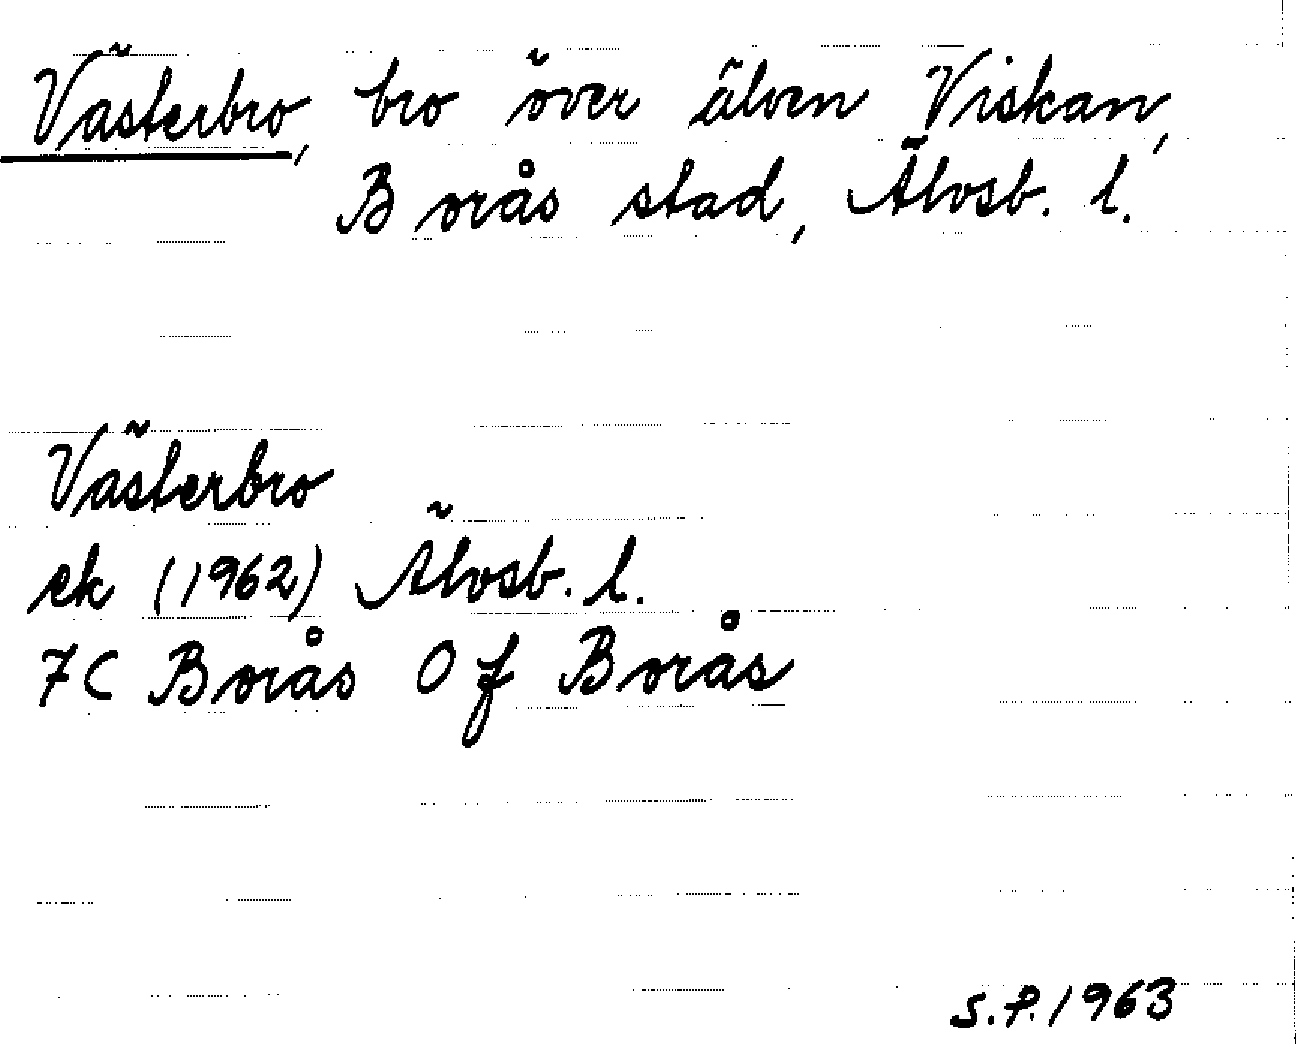 Västerbro, bro över älven Viskan,
Borås stad, Älvsb. l.
Västerbro
ek (1962) Älvsb. l.
7C Borås 0 f Borås
S.P. 1963